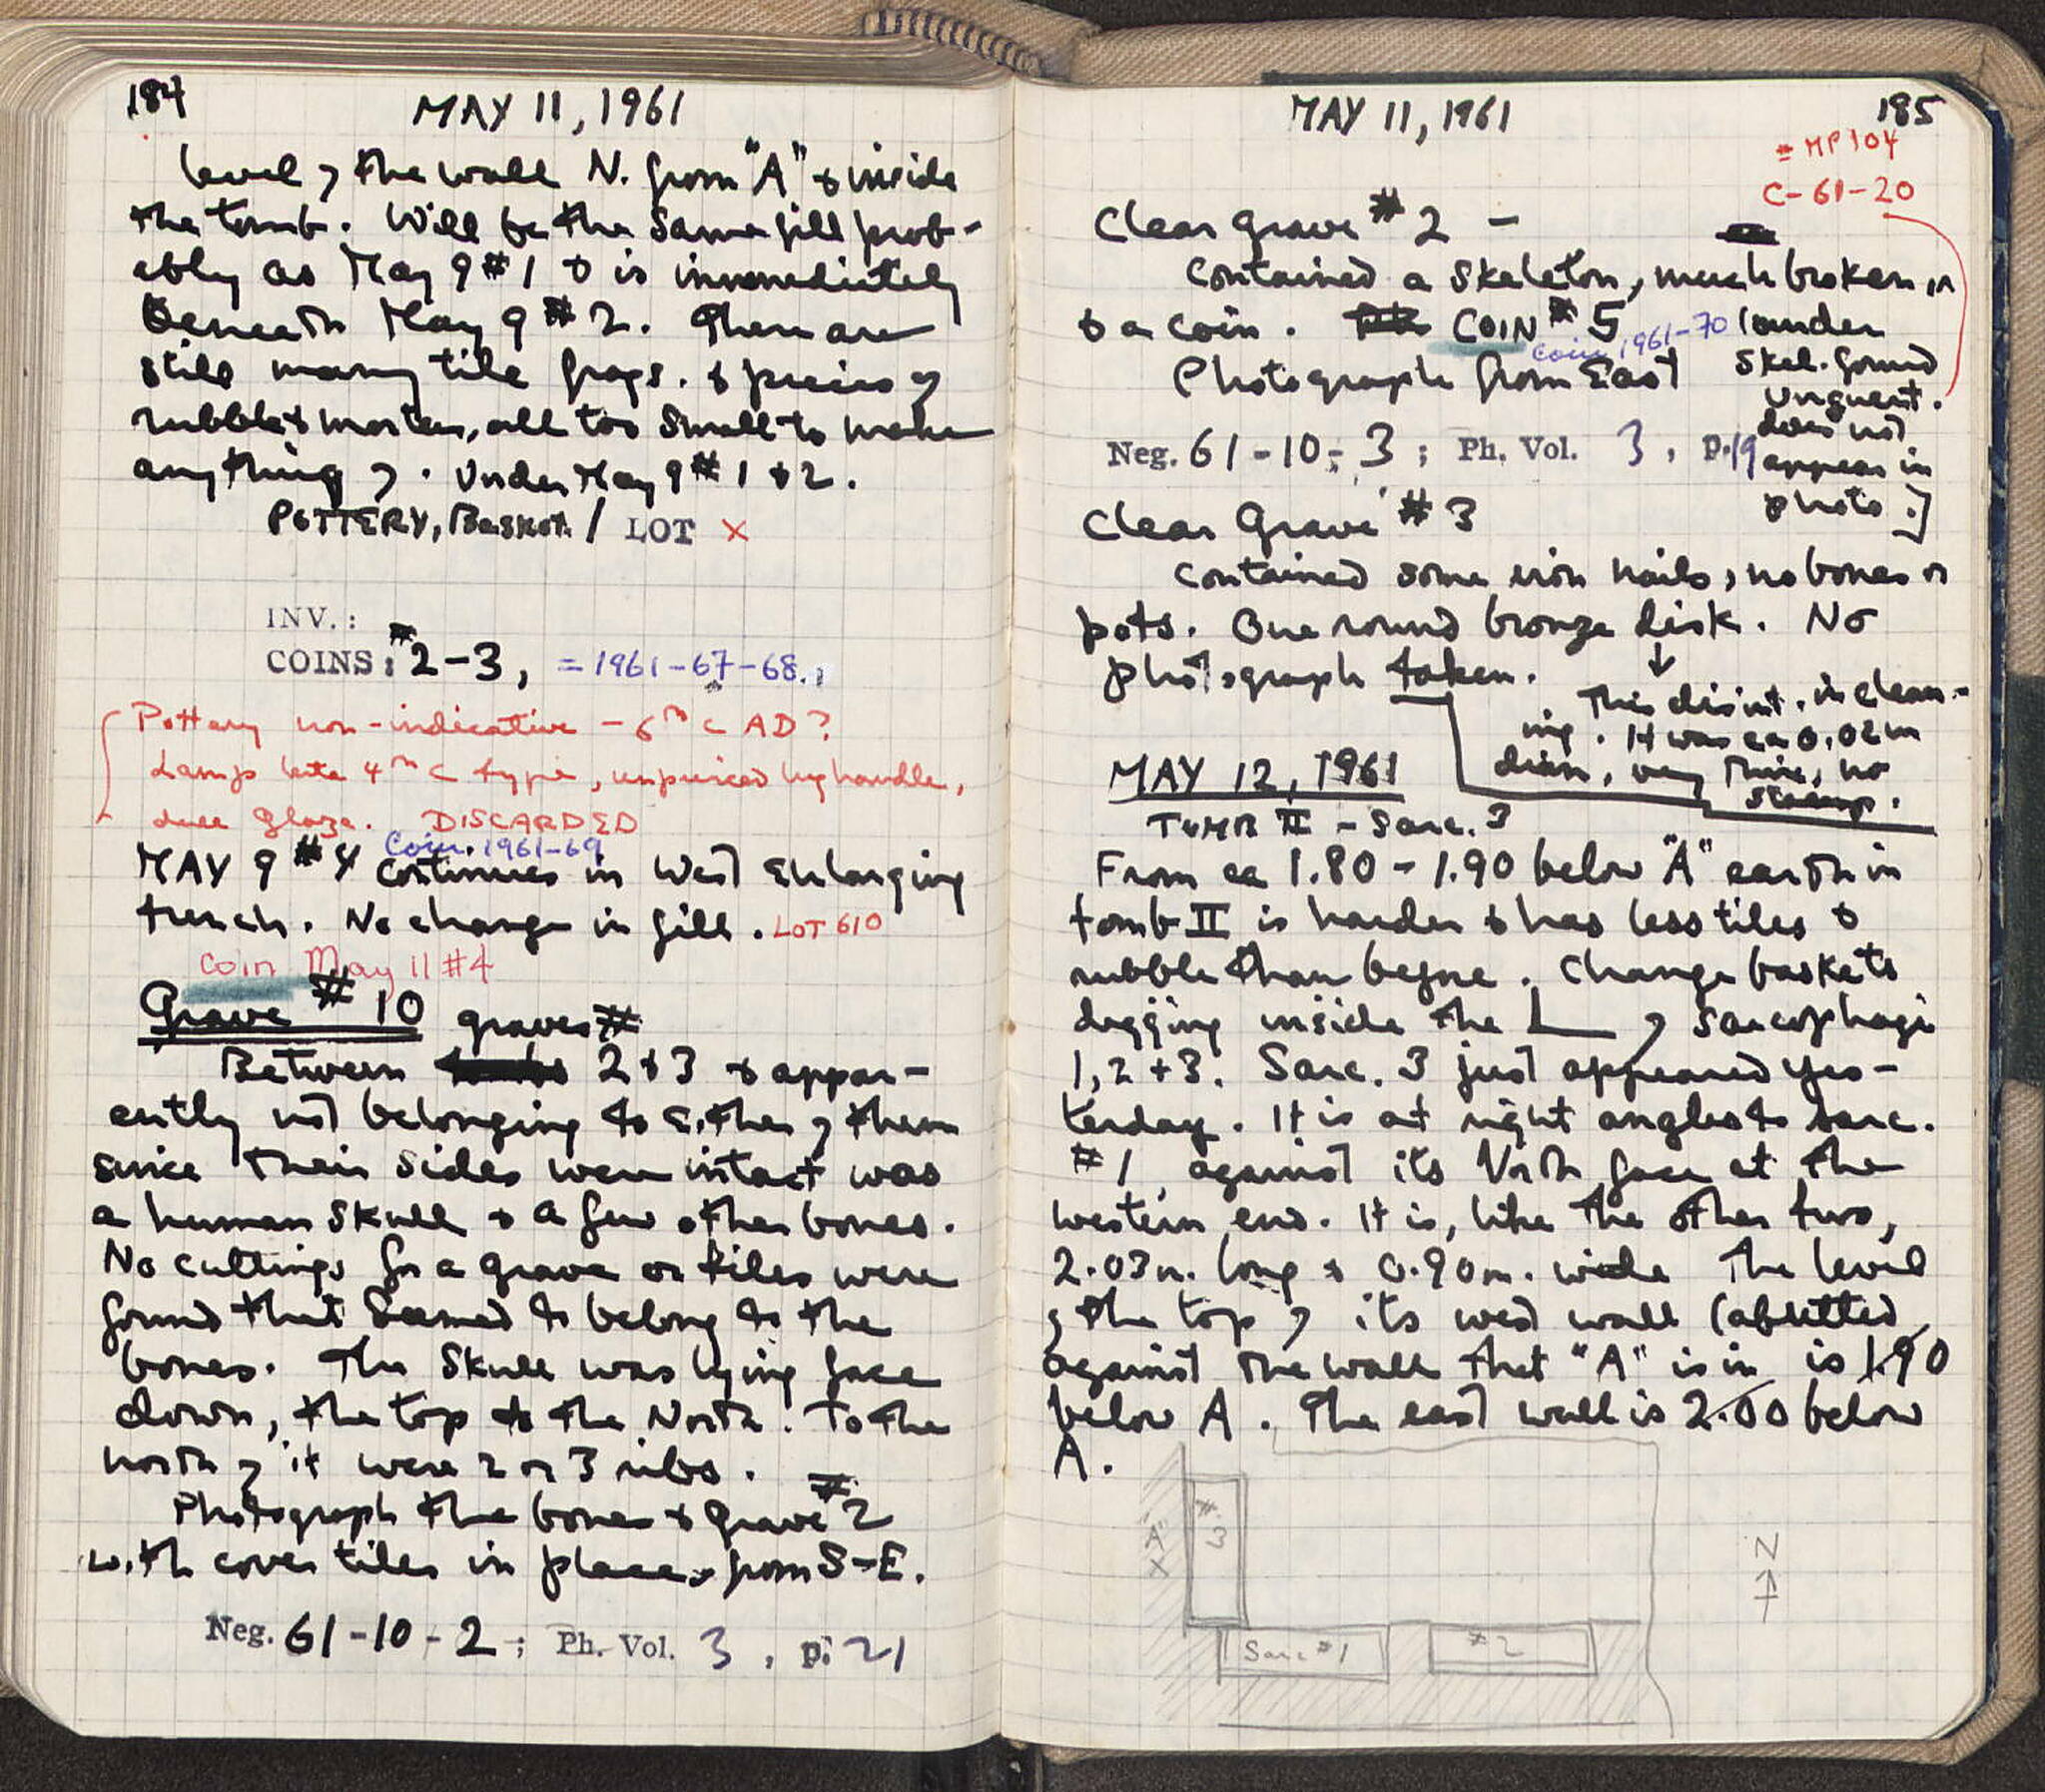 184
MAY 11, 1961
level of the wall N. from "A" & inside
the tomb. Will be the same fill prob-
ably as May 9 #1 & is immediately
beneath May 9 #2. There are
still many tile frags. & pieces of
rubble & mortar, all too small to make
anything of. Under May 9 #1 & 2.
POTTERY, Basket 1 LOT X
INV.:
COINS: #2-3, = 1961-67-68.
Pottery non-indicative - 6th c AD?
Lamp late 4th c type, unpierced handle,
dull glaze. DISCARDED
Coin 1961-69
MAY 9 #4 continues in West enlarging
trench. No change in fill. LOT 610
Coin May 11 #4
Grave #10
graves #
Between 2 & 3 & appar-
ently not belonging to either of them
since their sides were intact was
a human skull & a few other bones.
No cuttings for a grave or tiles were
found that seemed to belong to the
bones. The skull was lying face
down, the top to the North. To the
north of it were 2 or 3 ribs.
Photograph the bones & grave #2
with cover tiles in place from S-E.
Neg. 61-10-2; Ph. Vol. 3, p. 21
MAY 11, 1961
185
= MP 104
C-61-20
Clear grave #2 -
contained a skeleton, much broken
& a coin. COIN #5
Coin 1961-70
[under
skel. found
unguent.
does not
appear in
photo.]
Photograph from East
Neg. 61-10-3; Ph. Vol. 3, p. 19
Clear Grave #3
contained some iron nails, no bones or
pots. One round bronze disk. No
photograph taken.
This disint. in clean-
ing. It was ca 0.02m
diam, very thin, no
stamp.
MAY 12, 1961
TOMB II - Sarc. 3
From ca 1.80 - 1.90 below "A" earth in
tomb II is harder & has less tiles &
rubble than before. Change baskets
digging inside the L of sarcophagi
1, 2 + 3. Sarc. 3 just appeared yes-
terday. It is at right angles to sarc.
#1, against its North face at the
western end. It is, like the other two,
2.03m. long & 0.90m. wide The level
of the top of its west wall (abutted
against the wall that "A" is in is 1.90
below A. The east wall is 2.00 below
A.
"A"
X
#3
N
Sarc #1
#2